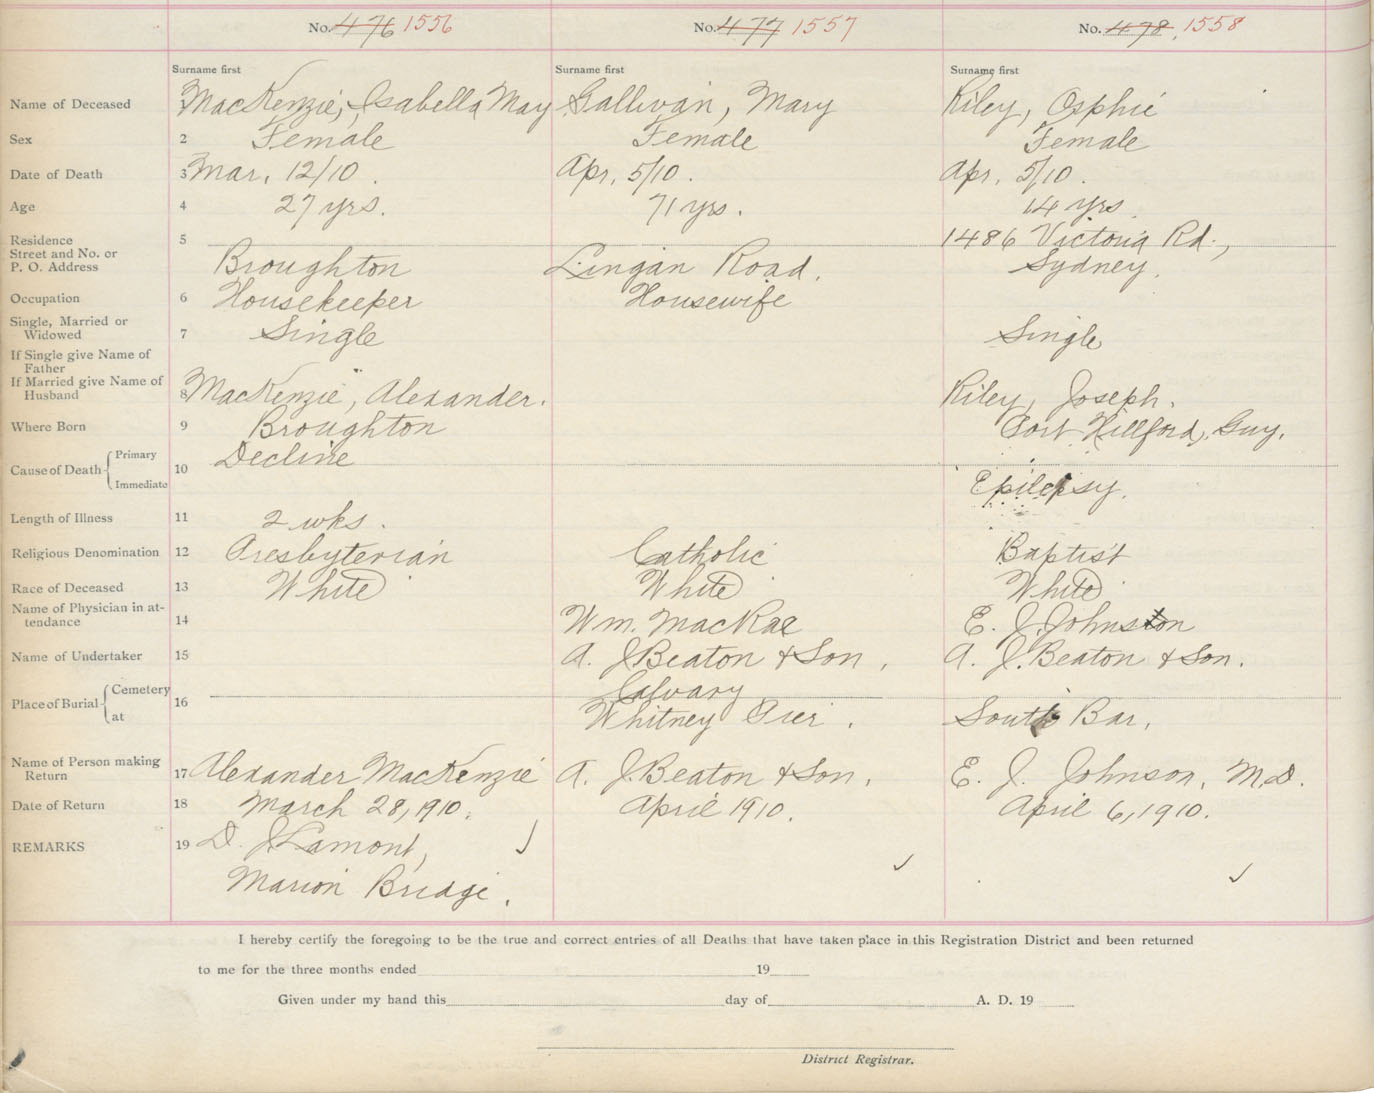 No. 476 1556 No. 477 1557 No. 478. 1558
Surname first Surname first Surname first
Name of Deceased 1 MacKenzie, Isabella May Gallivan, Mary Riley, Osphie
Sex 2 Female Female Female
Date of Death 3 Mar. 12/10. Apr. 5/10. Apr. 5/10.
Age 4 27 yrs. 71 yrs. 14 yrs.
Residence 5 1486 Victoria Rd.,
Street and No. or
P. O. Address Broughton Lingan Road. Sydney.
Occupation 6 Housekeeper Housewife
Single, Married or
Widowed 7 Single Single
If Single give Name of
Father
If Married give Name of
Husband 8 MacKenzie, Alexander. Riley, Joseph.
Where Born 9 Broughton Port Hillford, Guy.
Cause of Death Primary 10 Decline
Immediate Epilepsy.
Length of Illness 11 2 wks.
Religious Denomination 12 Presbyterian Catholic Baptist
Race of Deceased 13 White White White
Name of Physician in at-
tendance 14 Wm. MacRae E. J. Johnston
Name of Undertaker 15 A. J. Beaton & Son. A. J. Beaton & Son.
Place of Burial Cemetery 16 Calvary
at Whitney Pier. South Bar.
Name of Person making
Return 17 Alexander MacKenzie A. J. Beaton & Son. E. J. Johnson, M.D.
Date of Return 18 March 28, 1910. April 1910. April 6, 1910.
REMARKS 19 D. J. Lamont,
Marion Bridge.
I hereby certify the foregoing to be the true and correct entries of all Deaths that have taken place in this Registration District and been returned
to me for the three months ended 19
Given under my hand this day of A. D. 19
District Registrar.